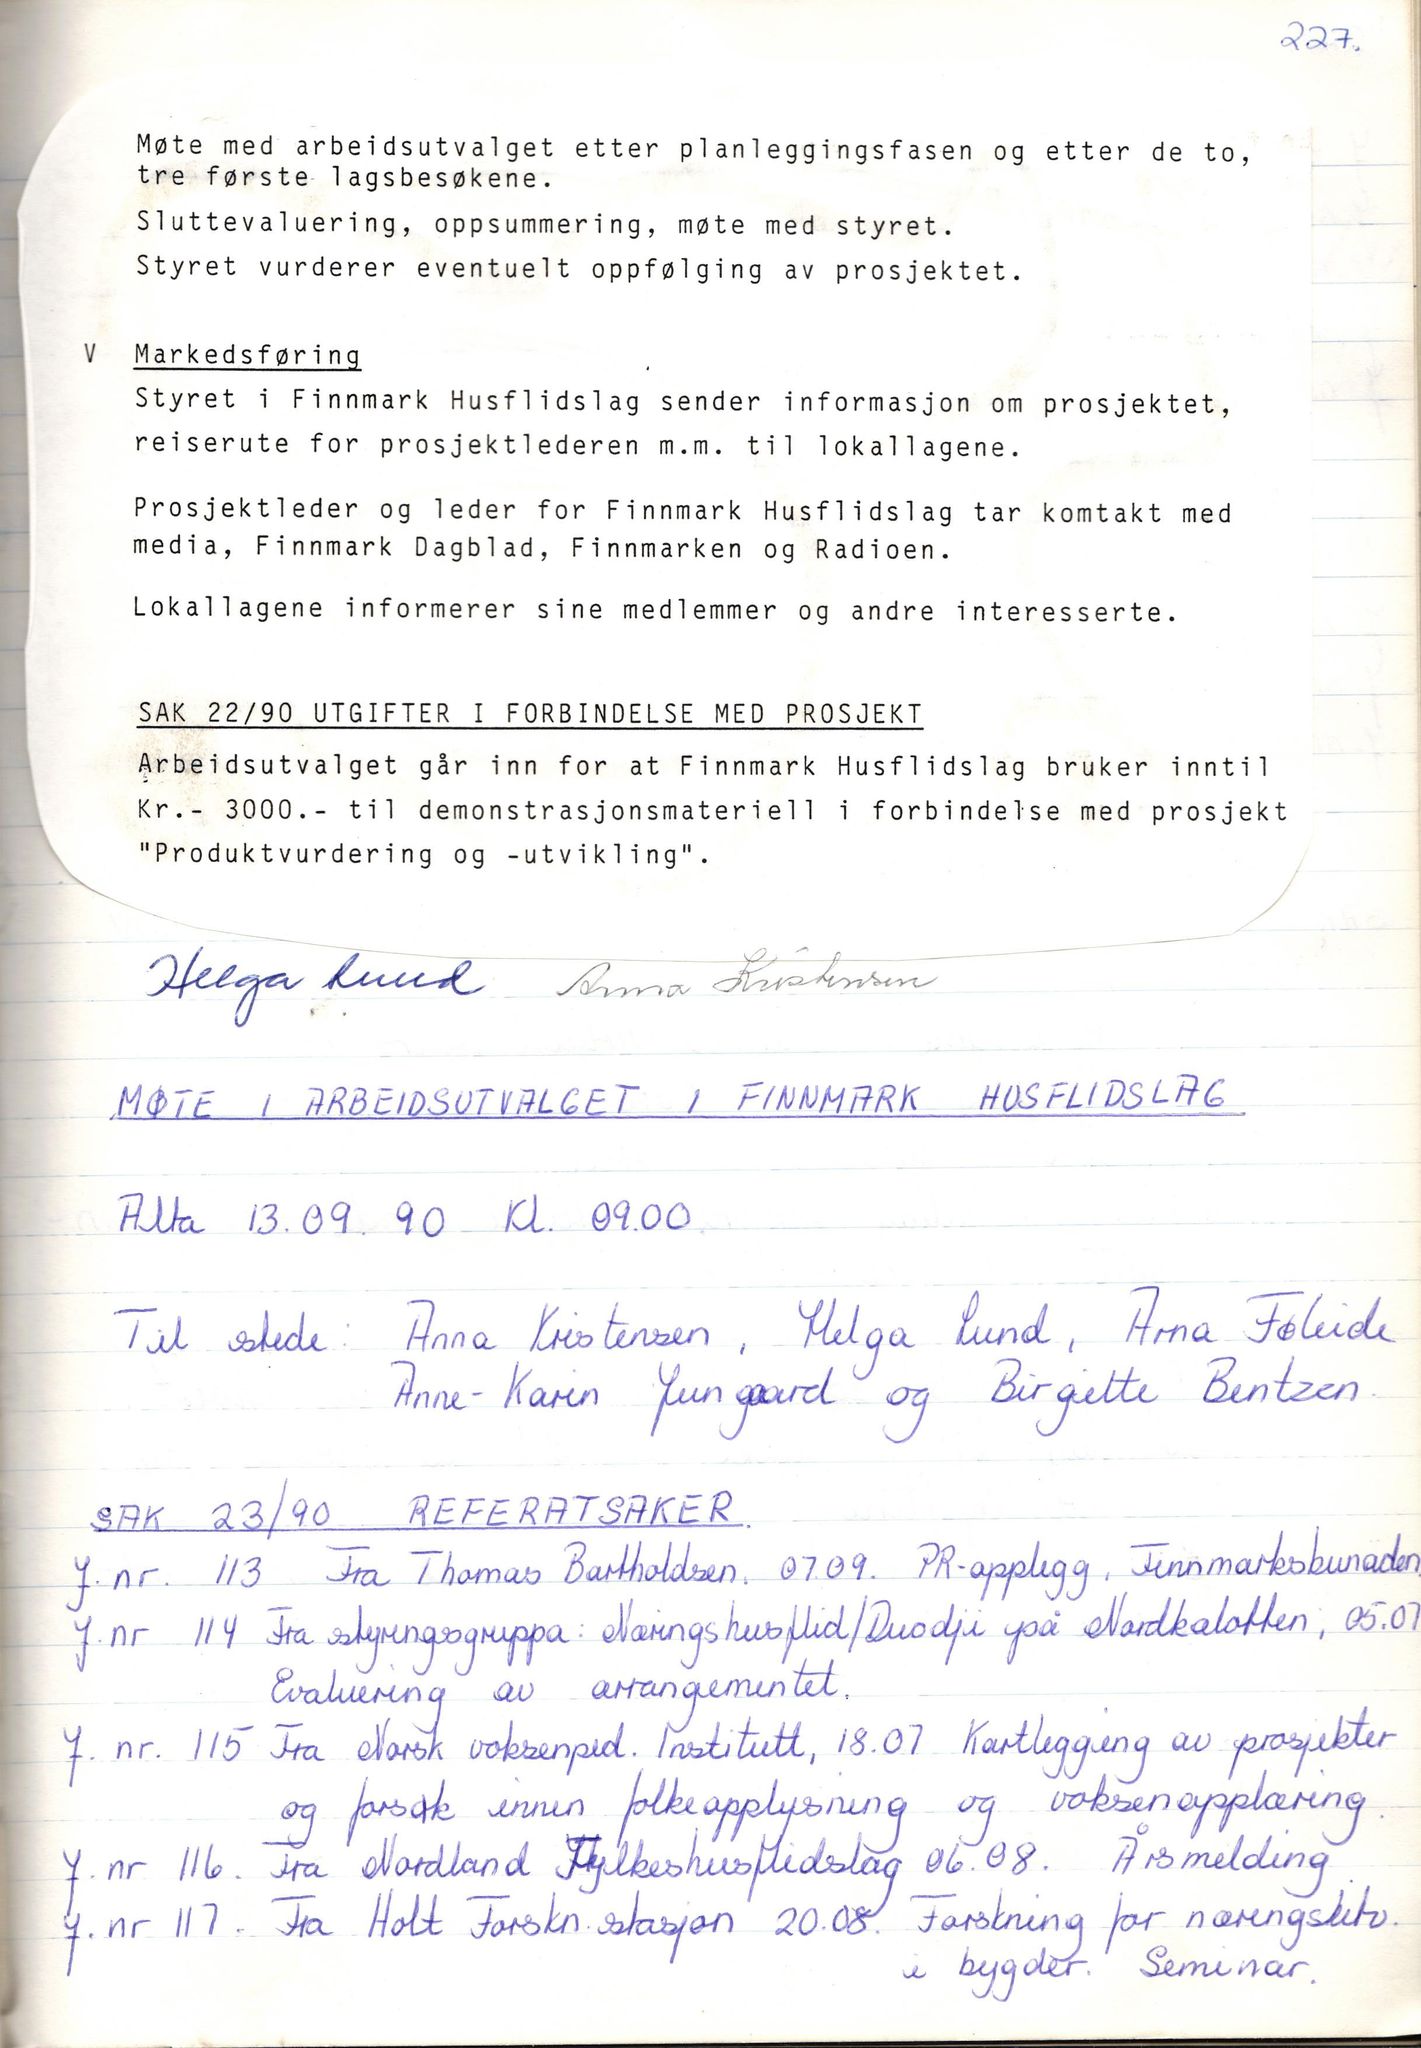 227.
Møte med arbeidsutvalget etter planleggingsfasen og etter de to,
tre første lagsbesøkene.
Sluttevaluering, oppsummering, møte med styret.
Styret vurderer eventuelt oppfølging av prosjektet.
V Markedsføring
Styret i Finnmark Husflidslag sender informasjon om prosjektet,
reiserute for prosjektlederen m.m. til lokallagene.
Prosjektleder og leder for Finnmark Husflidslag tar komtakt med
media, Finnmark Dagblad, Finnmarken og Radioen.
Lokallagene informerer sine medlemmer og andre interesserte.
SAK 22/90 UTGIFTER I FORBINDELSE MED PROSJEKT
Arbeidsutvalget går inn for at Finnmark Husflidslag bruker inntil
Kr.- 3000.- til demonstrasjonsmateriell i forbindelse med prosjekt
"Produktvurdering og -utvikling".
Helga Lund Anna Kristensen
MØTE I ARBEIDSUTVALGET I FINNMARK HUSFLIDSLAG
Alta 13.09.90 Kl. 09.00
Til stede: Anna Kristensen, Helga Lund, Arna Føleide
Anne-Karin Jungaard og Birgitte Bentzen.
SAK 23/90 REFERATSAKER
J. nr. 113 Fra Thomas Bartholdsen. 07.09. PR-opplegg, Finnmarksbunaden.
J. nr 114 Fra styringsgruppa: Næringshusflid/Duodji på Nordkalotten, 05.07
Evaluering av arrangementet.
J. nr. 115 Fra Norsk voksenped. Institutt, 18.07 Kartlegging av prosjekter
og forsøk innen folkeopplysning og voksenopplæring.
J. nr 116. Fra Nordland Fylkeshusflidslag 06.08. Årsmelding
J. nr 117. Fra Holt Forskn.stasjon 20.08. Forskning for næringsliv.
i bygder. Seminar.